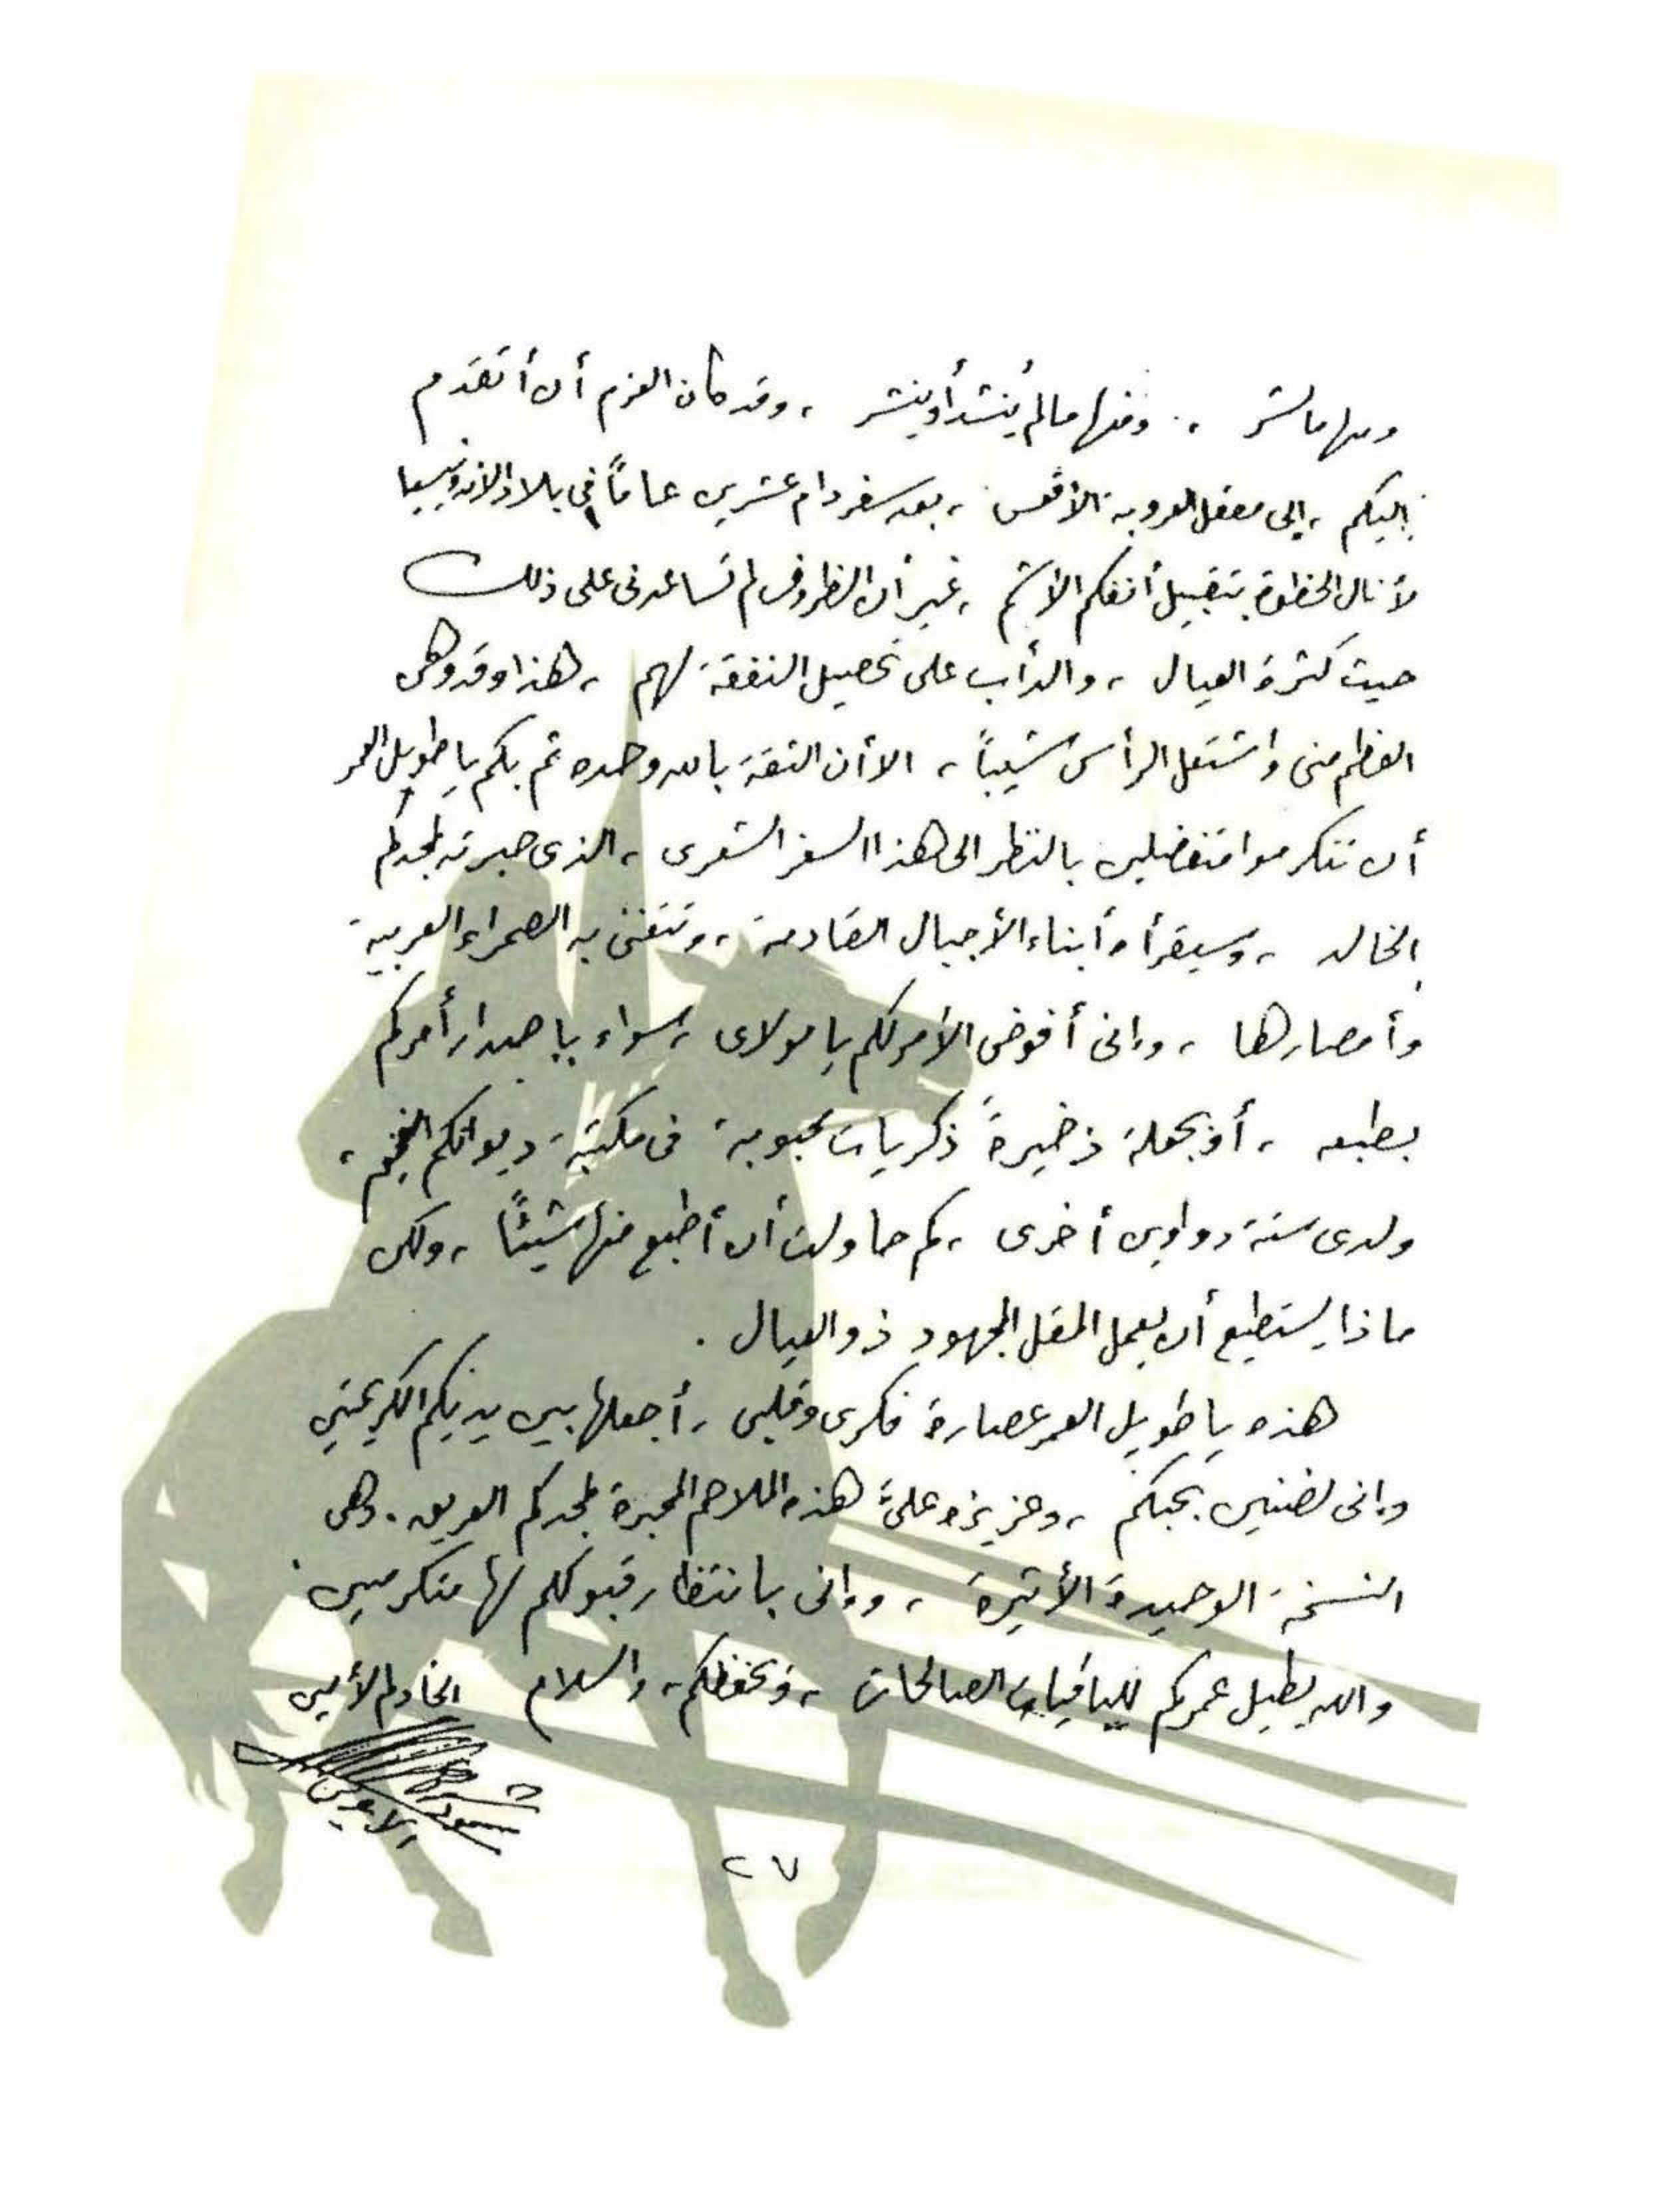 ومنها ما نشر ، ومنها ما لم يُنشد أو ينشر ، وقد كان العزم أن أتقدم
إليكم ، إلى معقل العروبة الأقعس ، بعد سفر دام عشرين عاماً في بلاد الأندونيسيا
لأنال الحظوة بتقبيل أنفكم الأشم ، غير أن الظروف لم تساعدنى على ذلك
حيث كثرة العيال ، والدأب على تحصيل النفقة لهم ، هذا وقد وهى
العظم منى واشتعل الرأس شيباً ، الا أن الثقة بالله وحده ثم بكم يا طويل العمر
أن تتكرموا متفضلين بالنظر الى هذا السفر الشعرى ، الذى حبرته لمجدكم
الخالد ، وسيقرأه أبناء الأجيال القادمة ، وتتغنى به الصحراء العربية
وأمصارها ، وإنى أفوض الأمر لكم يا مولاى ، سواء بإصدار أمركم
بطبعه ، أو بجعله ذخيرةً ذكريات محبوبة فى مكتبة ديوانكم الفخم ،
ولدى ستة دواوين أخرى ، كم حاولت أن أطبع منها شيئاً ، ولكن
ماذا يستطيع أن يعمل المقل المجهود ذو العيال .
هذه يا طويل العمر عصارة فكرى وقلبى ، أجعلها بين يديكم الكريمتين
وإنى لضنين بحبكم ، وعزيزه علىَّ هذه الملاحم المحبرة لمجدكم العريق . وهى
النسخة الوحيدة الأثيرة ، وإنى بانتظار قبولكم لها متكرمين
والله يطيل عمركم للباقيات الصالحات ، ويحفظكم ، والسلام الخادم الأمين
٢٧